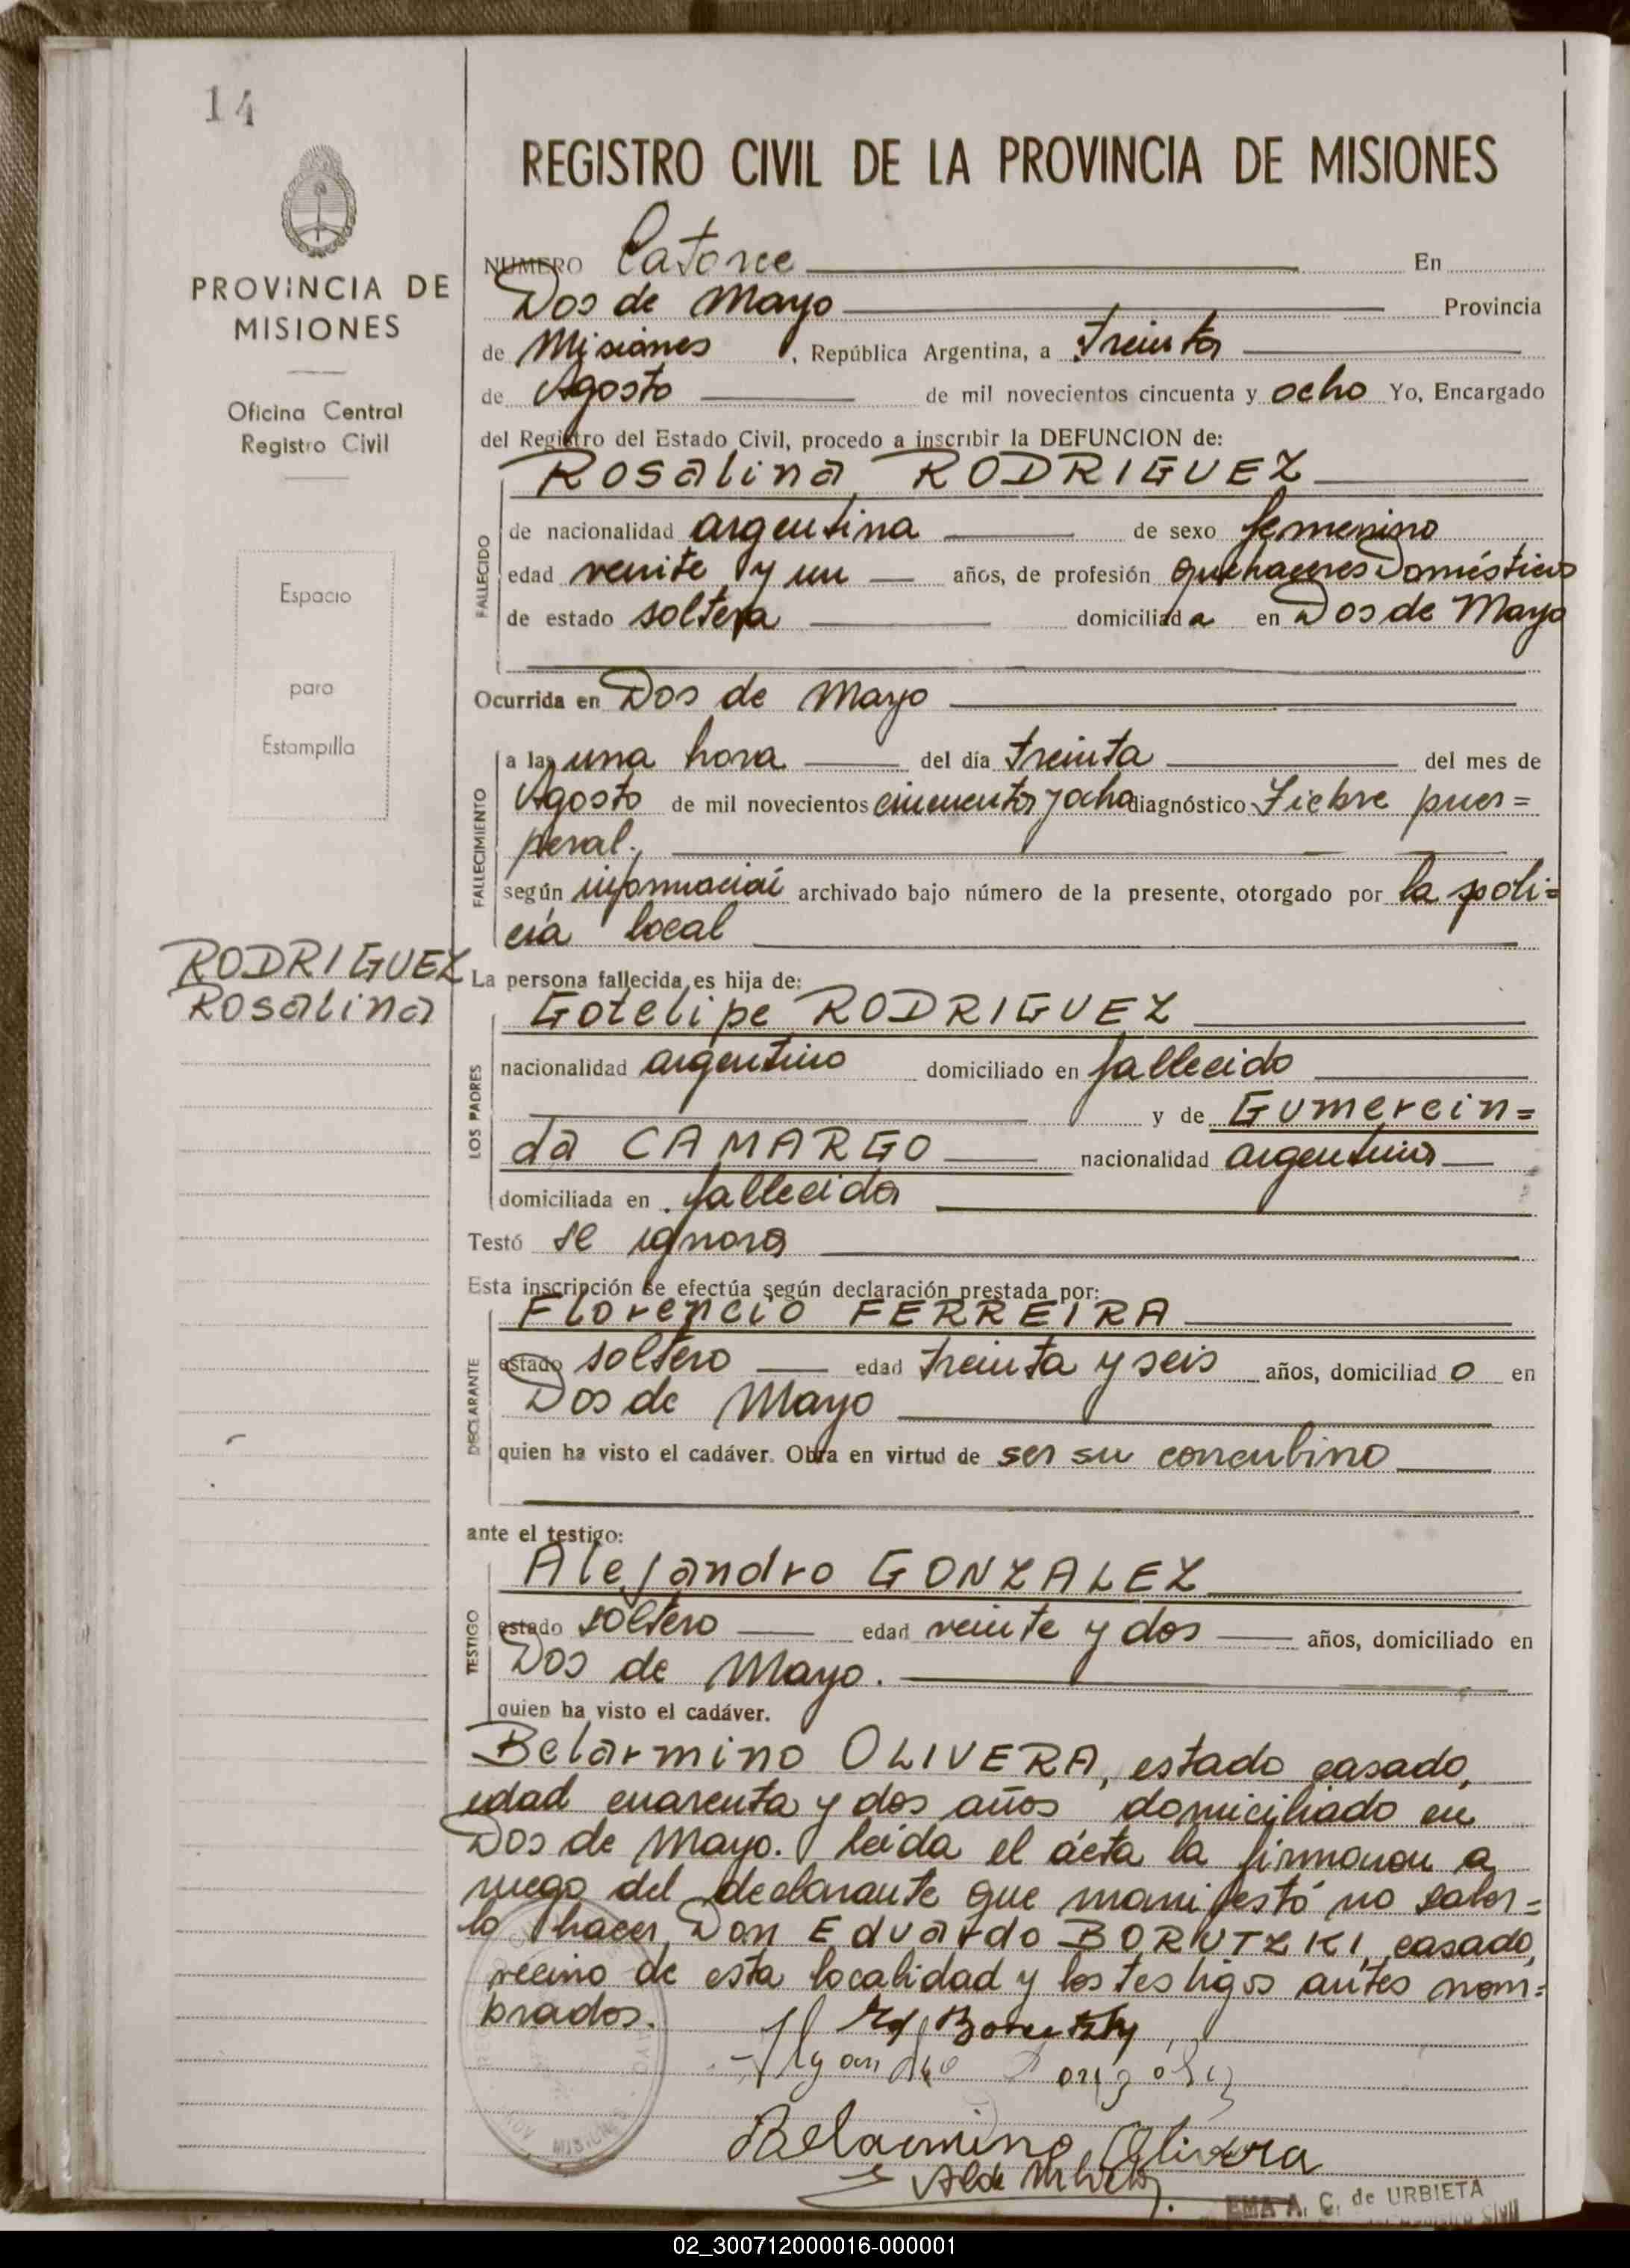 14
PROVINCIA DE
MISIONES
Oficina Central
Registro Civil
Espacio
para
Estampilla
RODRIGUEZ
Rosalina
REGISTRO CIVIL DE LA PROVINCIA DE MISIONES
NUMERO Catorce En
Dos de Mayo Provincia
de Misiones, República Argentina, a treinta
de Agosto de mil novecientos cincuenta y ocho Yo, Encargado
del Registro del Estado Civil, procedo a inscribir la DEFUNCION de:
Rosalina RODRIGUEZ
FALLECIDO
de nacionalidad argentina de sexo femenino
edad veinte y un años, de profesión Quehaceres Domésticos
de estado soltera domiciliada en Dos de Mayo
Ocurrida en Dos de Mayo
FALLECIMIENTO
a las una hora del día treinta del mes de
Agosto de mil novecientos cincuenta y ocho diagnóstico Fiebre puer=
peral.
según información archivado bajo número de la presente, otorgado por la poli=
cía local
La persona fallecida es hija de:
LOS PADRES
Gotelipe RODRIGUEZ
nacionalidad argentino domiciliado en fallecido
y de Gumercin=
da CAMARGO nacionalidad argentina
domiciliada en fallecida
Testó se ignora
Esta inscripción se efectúa según declaración prestada por:
DECLARANTE
Florencio FERREIRA
estado soltero edad treinta y seis años, domiciliado en
Dos de Mayo
quien ha visto el cadáver. Obra en virtud de ser su concubino
ante el testigo:
TESTIGO
Alejandro GONZALEZ
estado soltero edad veinte y dos años, domiciliado en
Dos de Mayo.
quien ha visto el cadáver.
Belarmino OLIVERA, estado casado,
edad cuarenta y dos años domiciliado en
Dos de Mayo. leída el ácta la firmaron a
ruego del declarante que manifestó no saber=
lo hacer, Don Eduardo BORUTZKI, casado,
vecino de esta localidad y los testigos antes nom=
brados.
Belarmino Olivera
EMA A. C. de URBIETA
02_300712000016-000001